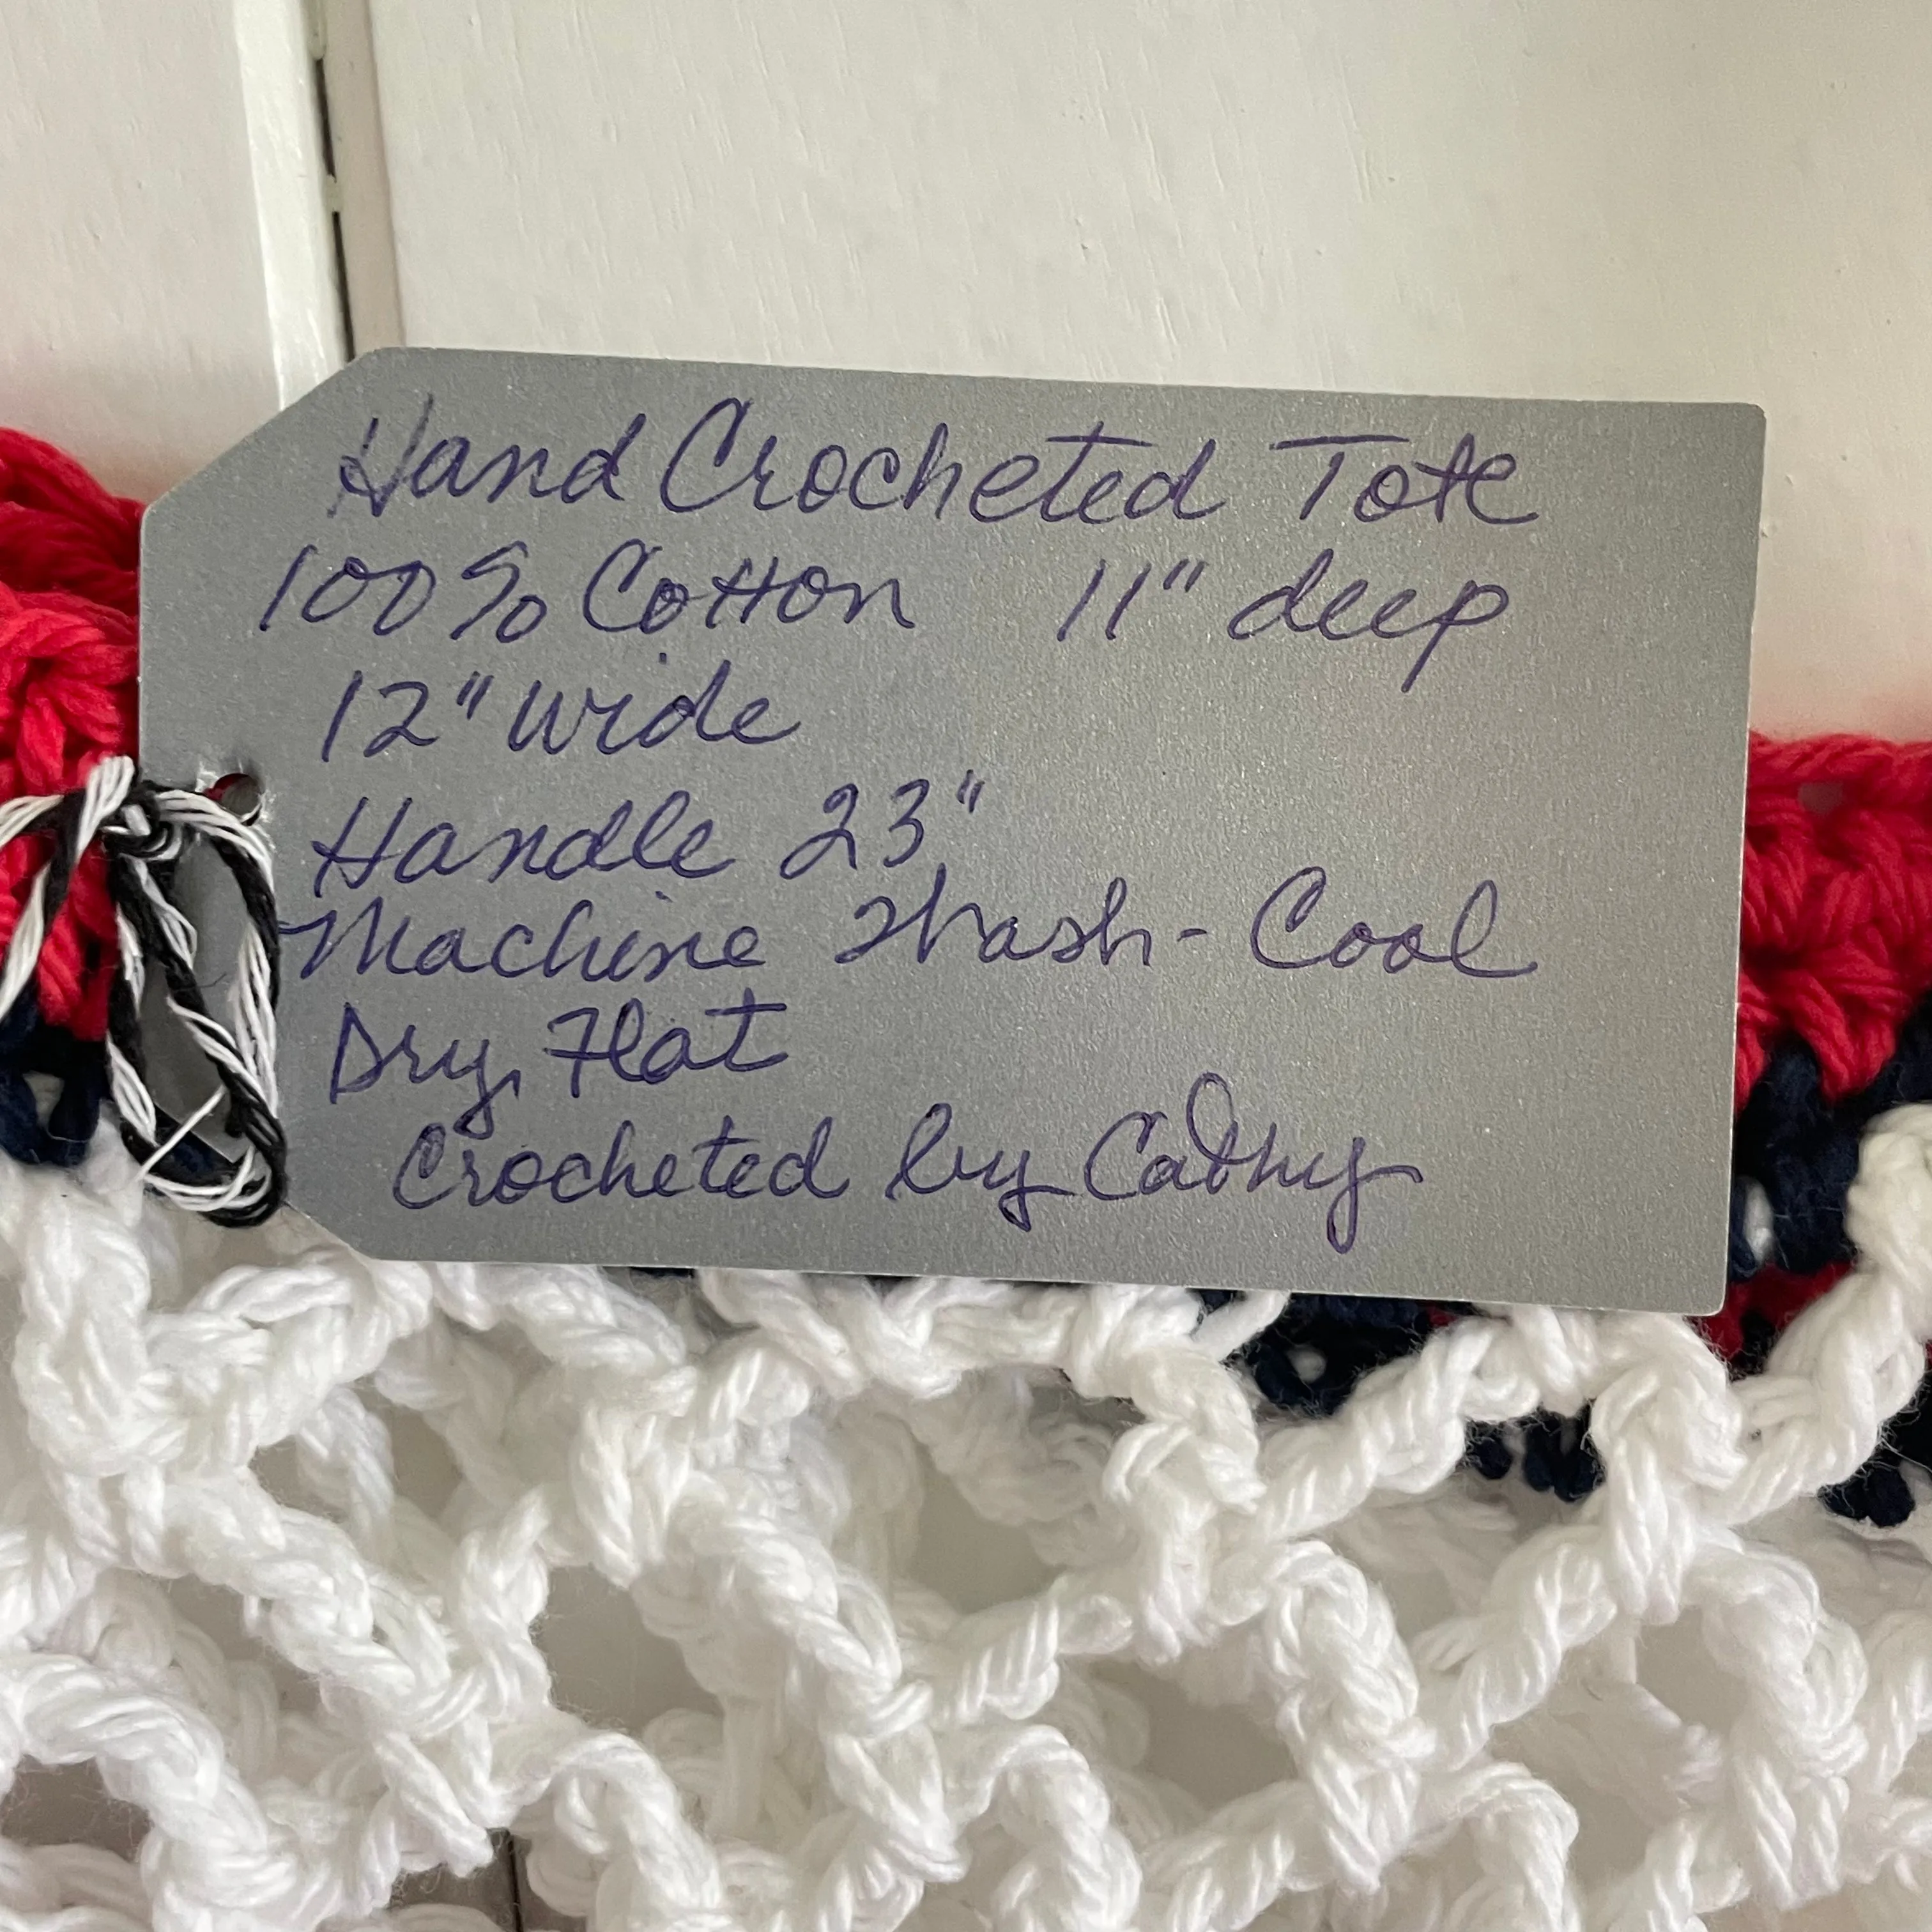 Hand Crocheted Tote
100% Cotton 11" deep
12" wide
Handle 23"
Machine Wash - Cool
Dry Flat
Crocheted by Cathy